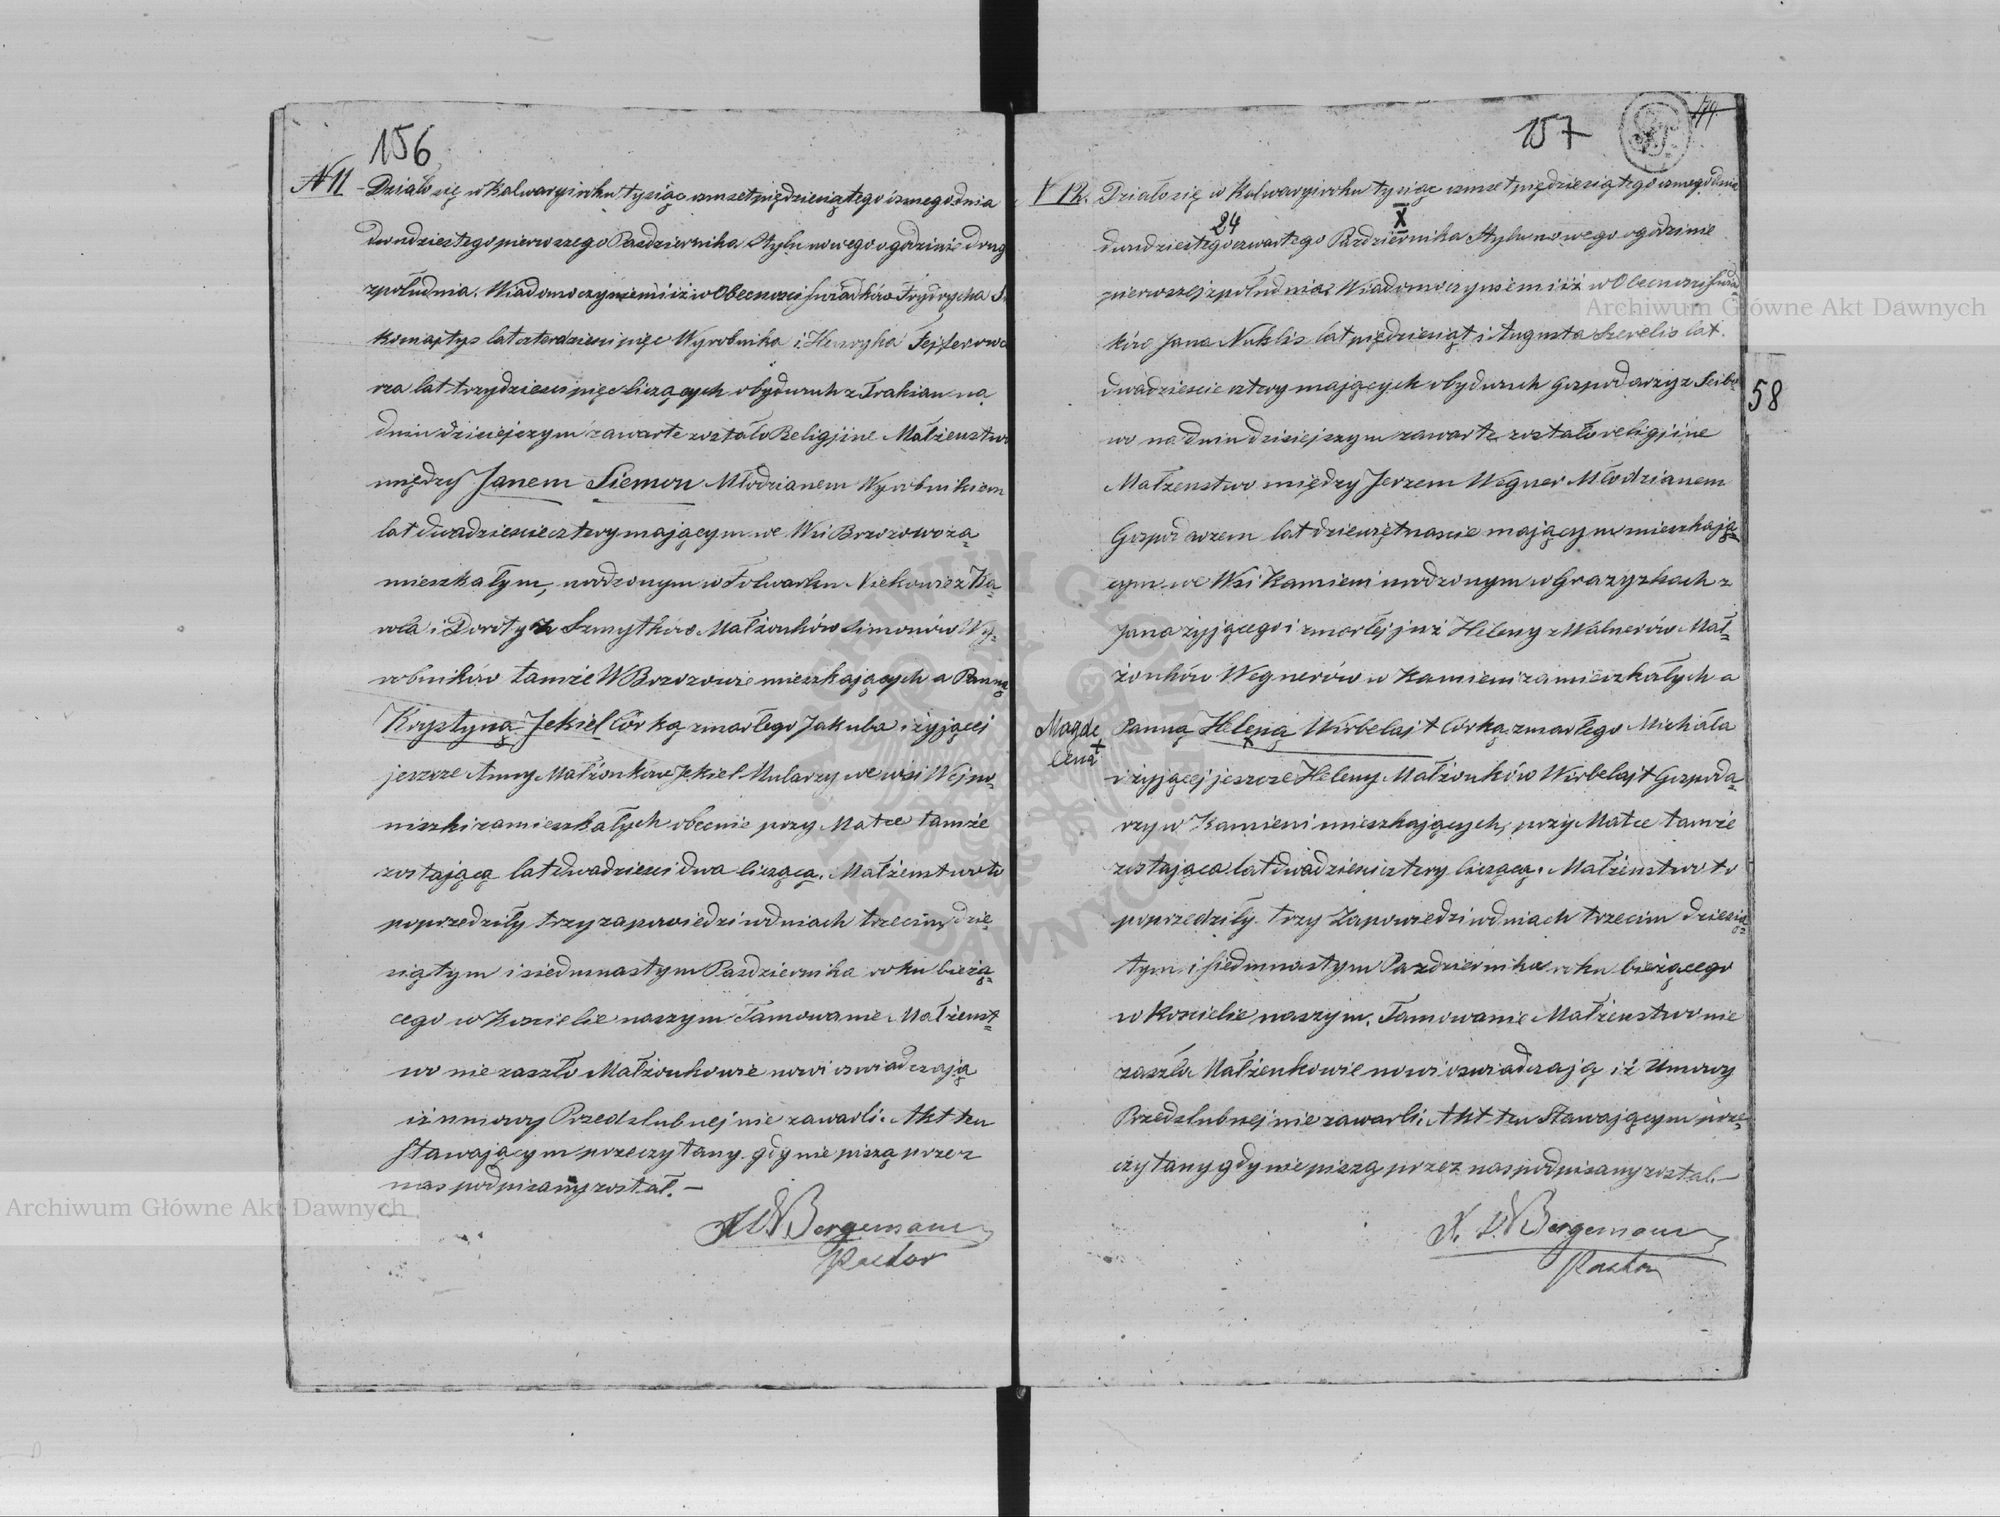 156
N 11
Działo się w Kalwaryi roku tysiąc osmset pięćdziesiątego osmego dnia
dwudziestego pierwszego Pazdziernika Stylu nowego o godzinie drug
z południa. Wiadomo czyniemi iż w Obecnosci swiadków Frydrycha
lat czterdziesci pięć Wyrobnika i Henryka
rza lat trzydziesci pięć liczących obydwuch z Trakian na
dniu dzisiejszym zawarte zostało Religijne Małżenstwo
między Janem Siemon Młodzianem Wyrobnikiem
lat dwadziescie cztery mającym we Wsi Brzozowo za=
mieszkałym, urodzonym w folwarku z Ka=
rola i Doroty z Szmytków Małżonków Simonów Wy=
robników tamże W Brzozowie mieszkających a Panną
Krystyną Jekiel Córką zmarłego Jakuba i żyjącej
jeszcze Anny Małżonków Jekiel Mularzy we wsi Wejpo=
niszki zamieszkałych obecnie przy Matce tamże
zostającą lat dwadziesci dwa liczącą. Małżenstwo to
poprzedziły trzy zapowiedzi w dniach trzecim, dzie
siątym i siedmnastym Pazdziernika roku bieżą=
cego w Kosciele naszym. Tamowanie Małżenst=
wo nie zaszło Małżonkowie nowi oswiadczają
iż umowy Przedslubnej nie zawarli. Akt ten
Stawającym przeczytany gdy nie piszą przez
nas podpisany został. —
Bergemann
Pastor
157
179
12. Działo się w Kalwaryi roku tysiąc osmset pięćdziesiątego osmego dnia
24 X
dwudziestego czwartego Pazdziernika Stylu nowego o godzinie
pierwszej z południa. Wiadomo czyniemi iż w Obecnosci swia
ków Jana Noklis lat pięćdziesiąt i Augusta Szerelis lat
dwadziescie cztery mających obydwuch Gospodarzy z
wo na dniu dzisiejszym zawarte zostało religijne
Małżenstwo między Jerzem Wegner Młodzianem
Gospodarzem lat dziewiętnascie mającym mieszkają=
cym we Wsi Kamieni urodzonym w Grazyszkach z
Jana żyjącego i zmarłej już Heleny z Walnerów Mał=
żonków Wegnerów w Kamieni zamieszkałych a
Magda
lena +
Panną Heleną Wirbelajt Córką zmarłego Michała
i żyjącej jeszcze Heleny Małżonków Wirbelajt Gospoda=
rzy w Kamieni mieszkających, przy Matce tamże
zostająca lat dwadziesci cztery liczącą. Małżenstwo to
poprzedziły trzy Zapowiedzi w dniach trzecim dziesią=
tym i siedmnastym Pazdziernika roku bieżącego
w Kosciele naszym. Tamowanie Małżenstwo nie
zaszło Małżonkowie nowi oswiadczają iż Umowy
Przedslubnej nie zawarli. Akt ten Stawającym prze=
czytany gdy nie piszą przez nas podpisany został. —
Bergemann
Pastor
58
Archiwum Główne Akt Dawnych
Archiwum Główne Akt Dawnych
ARCHIWUM GŁÓWNE AKT DAWNYCH